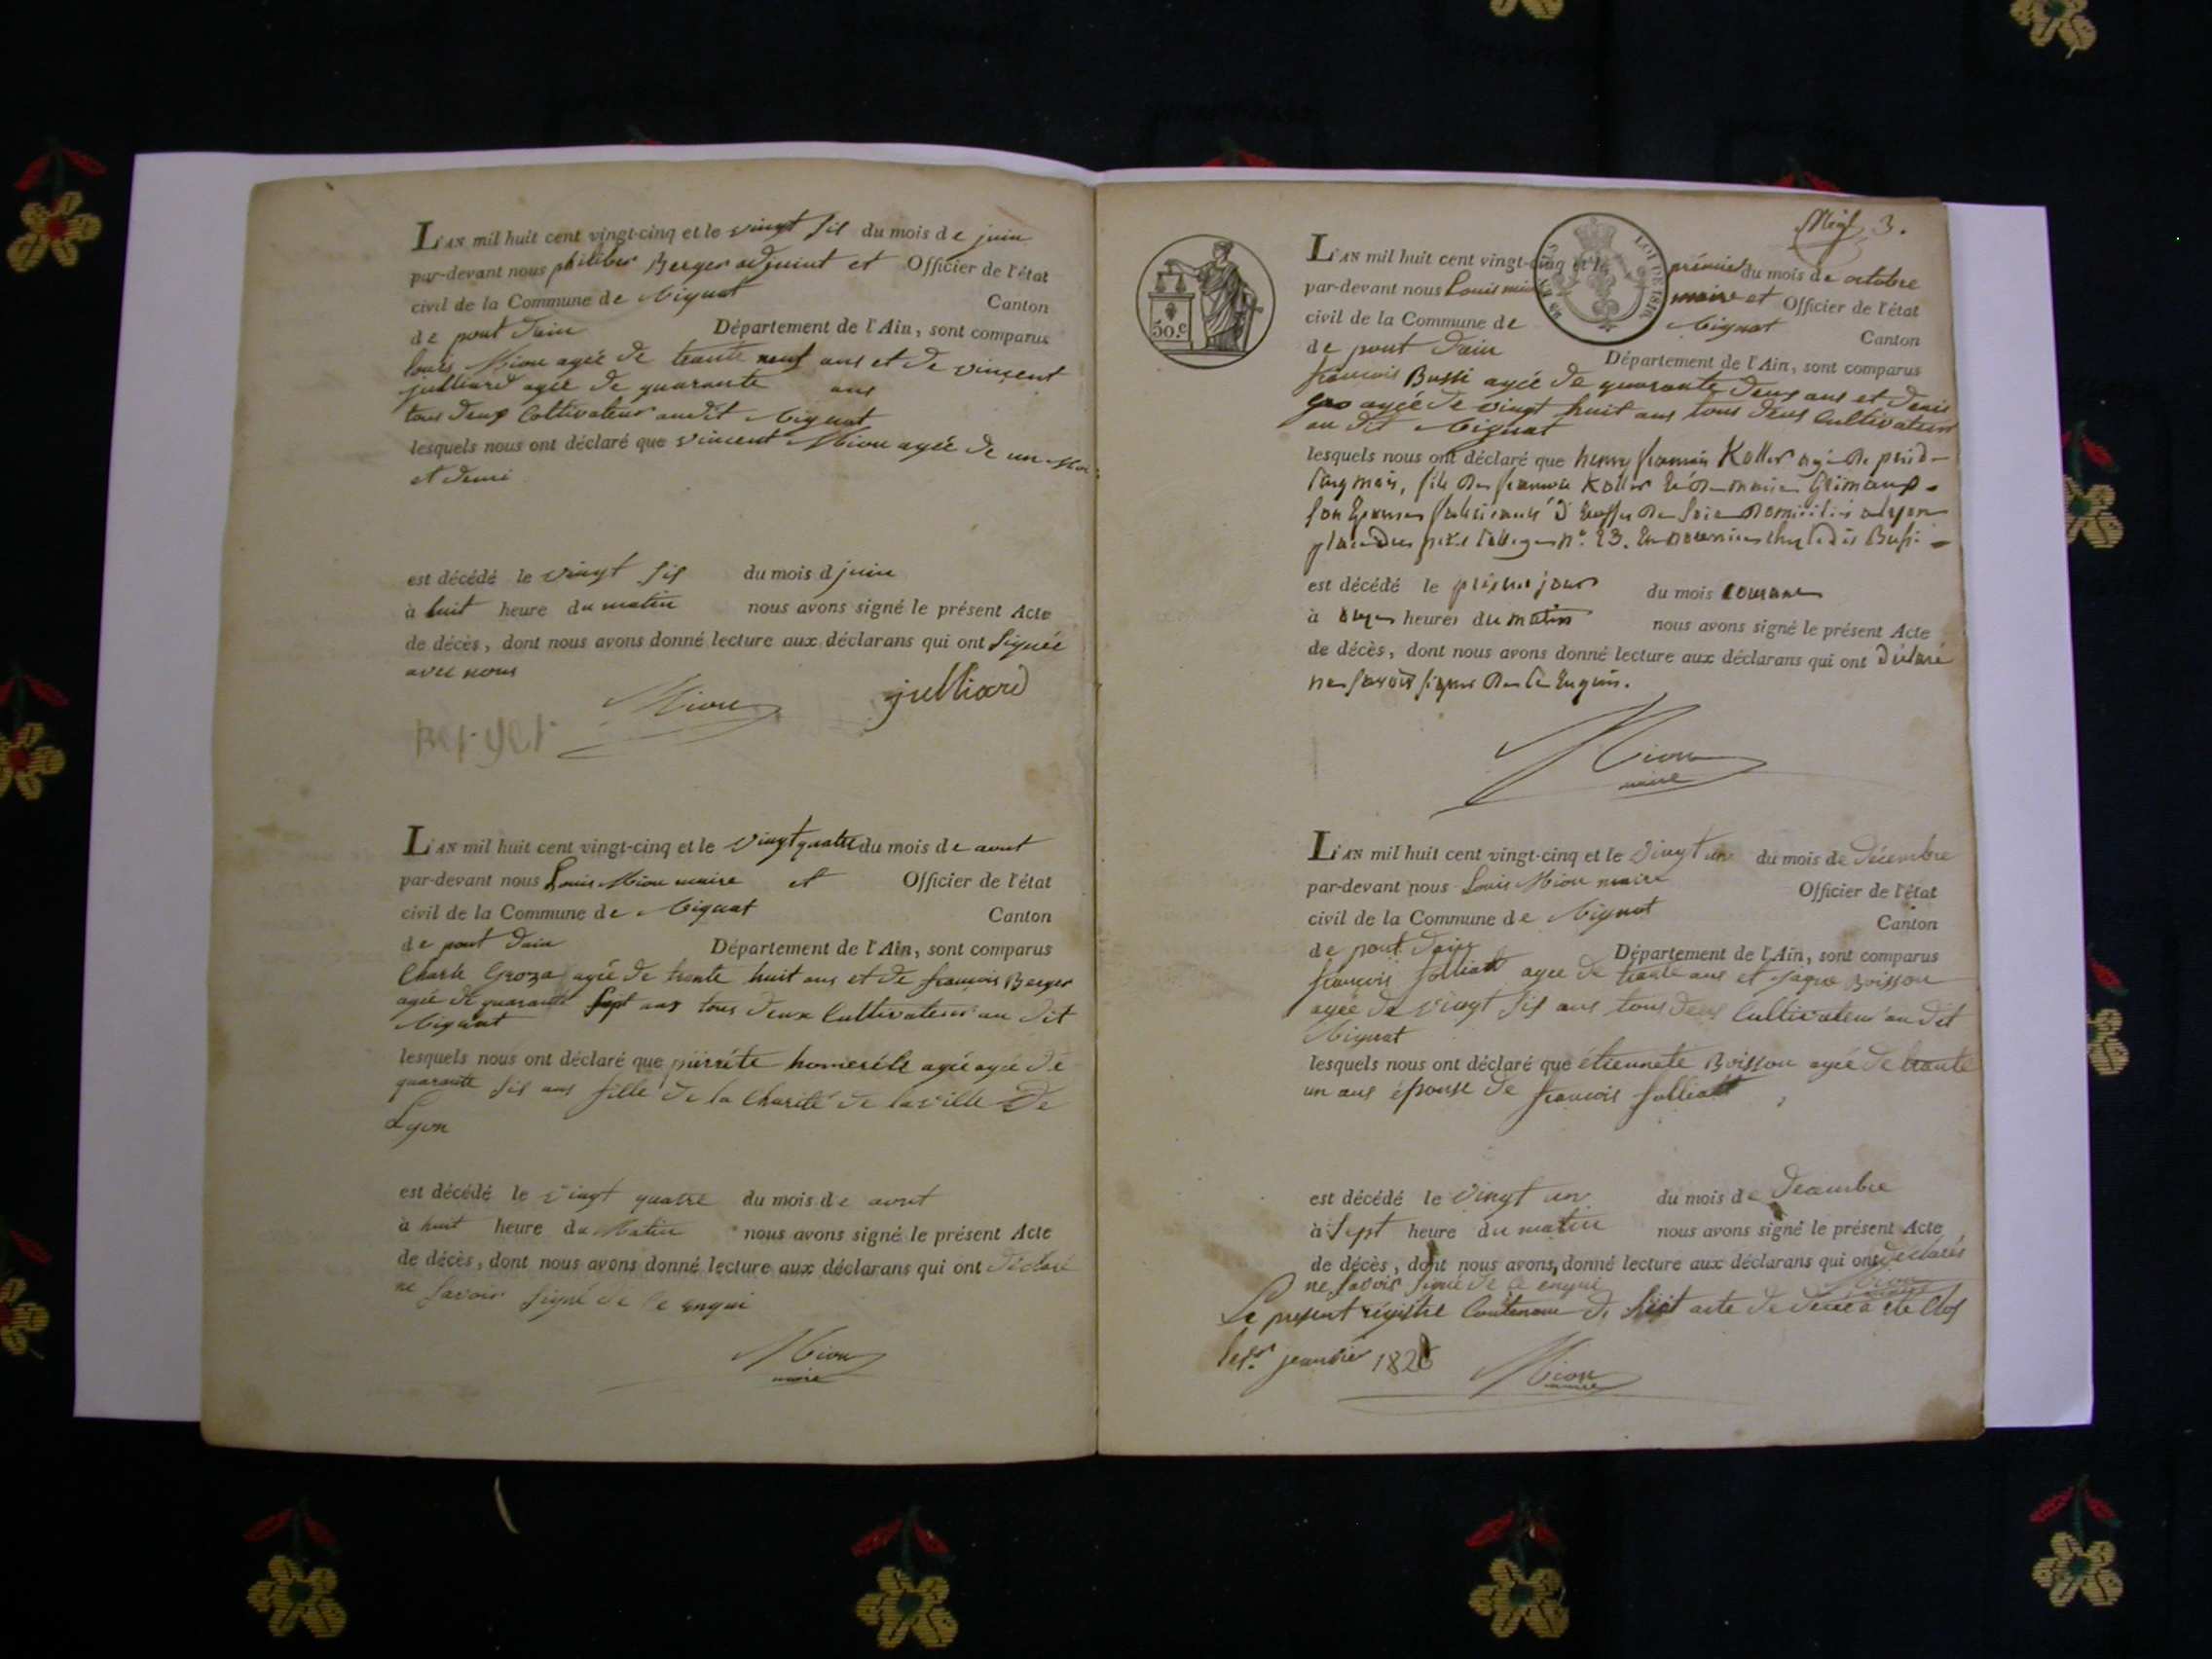 L'AN mil huit cent vingt-cinq et le vingt sis du mois de juin
par-devant nous philiber Berger adjoint et Officier de l'état
civil de la Commune de Mignat Canton
de pont dain Département de l'Ain, sont comparus
louis Mion agée de trante neuf ans et de vincent
julliard agée de quarante ans
tous deux Coltivateur audit Mignat
lesquels nous ont déclaré que vincent Mion agée de un moi
et demi
est décédé le vingt sis du mois d juin
à huit heure du matin nous avons signé le présent Acte
de décès, dont nous avons donné lecture aux déclarans qui ont signée
avec nous
Mion julliard
Berger
L'AN mil huit cent vingt-cinq et le vingt quatre du mois de aout
par-devant nous Louis Mion maire et Officier de l'état
civil de la Commune de Mignat Canton
de pont dain Département de l'Ain, sont comparus
Charle Groza agée de trante huit ans et de francois Berger
agée de quarante sept ans tous deux Cultivateur au dit
Mignat
lesquels nous ont déclaré que pierrete agée agée de
quarante sis ans fille de la Charité de la ville De
Lyon
est décédé le vingt quatre du mois de aout
à huit heure du Matin nous avons signé le présent Acte
de décès, dont nous avons donné lecture aux déclarans qui ont déclaré
ne savoir signé de ce enqui
Mion
maire
3.
50.c
LOI DE 1816
L'AN mil huit cent vingt-cinq et le premier du mois de octobre
par-devant nous Louis mion maire et Officier de l'état
civil de la Commune de Mignat Canton
de pont dain Département de l'Ain, sont comparus
francois Bussi agée de quarante deux ans et denis
gro agée de vingt huit ans tous deux Cultivateur
au dit Mignat
lesquels nous ont déclaré que henry Koller agé de
cinq mois, fils de Koller
son Epouse d'Etoffes de soie domiciliés a lyon
place du petit College n.° 23. En chez le dit Bussi
est décédé le jour du mois courant
à onze heures du matin nous avons signé le présent Acte
de décès, dont nous avons donné lecture aux déclarans qui ont déclaré
ne savoir signer de ce Enquis.
Mion
maire
L'AN mil huit cent vingt-cinq et le vingt un du mois de décembre
par-devant nous Louis Mion maire Officier de l'état
civil de la Commune de Mignat Canton
de pont dain Département de l'Ain, sont comparus
françois agée de trante ans et Boisson
agée de vingt sis ans tous deux Cultivateur au dit
Mignat
lesquels nous ont déclaré que étiennete Boisson agée de trante
un ans épouse de francois
est décédé le vingt un du mois de décembre
à sept heure du matin nous avons signé le présent Acte
de décès, dont nous avons donné lecture aux déclarans qui ont déclarés
ne savoir signé de ce enqui Mion
Le present registre Contenant de acte de a ete Clos
le 1.er janvier 1826
Mion
maire